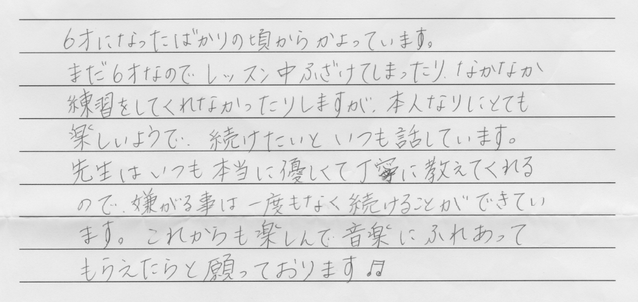 6才になったばかりの頃からかよっています。
まだ6才なので レッスン中ふざけてしまったり、なかなか
練習をしてくれなかったりしますが、本人なりにとても
楽しいようで、続けたいといつも話しています。
先生はいつも本当に優しくて丁寧に教えてくれる
ので、嫌がる事は一度もなく続けることができてい
ます。これからも楽しんで音楽にふれあって
もらえたらと願っております♫